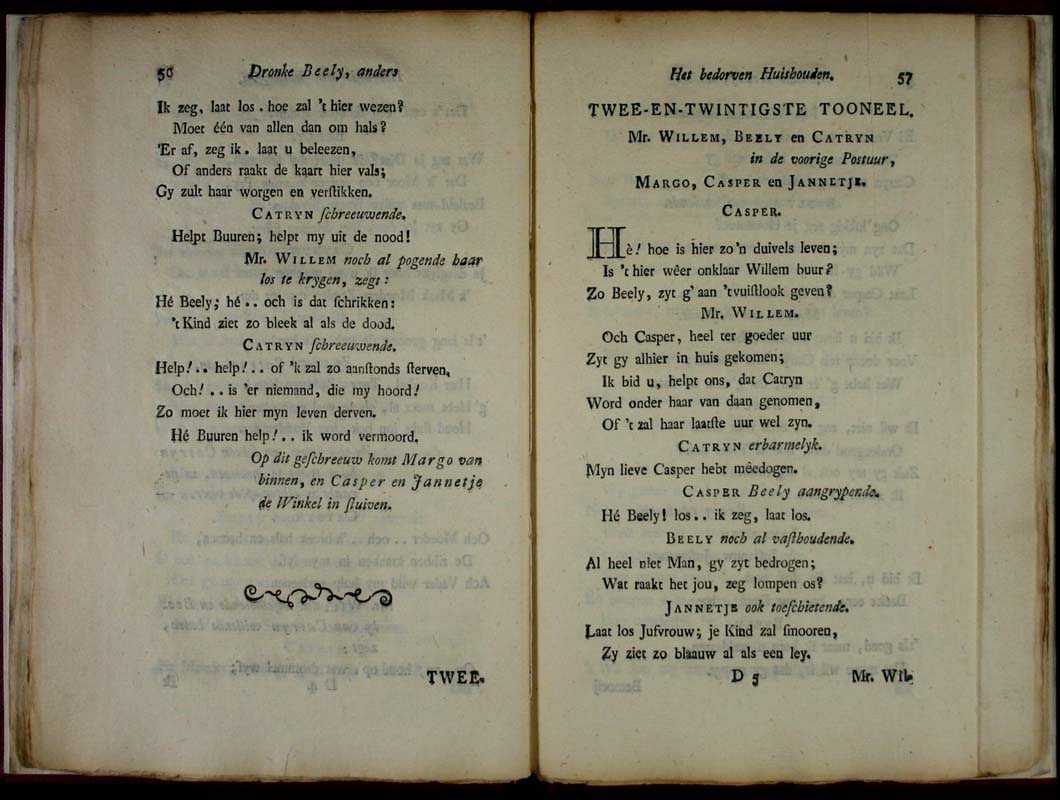 56 Dronke Beely, anders
Ik zeg, laat los . hoe zal 't hier wezen?
Moet één van allen dan om hals?
'Er af, zeg ik. laat u beleezen,
Of anders raakt de kaart hier vals;
Gy zult haar worgen en verſtikken.
CATRYN ſchreeuwende.
Helpt Buuren; helpt my uit de nood!
Mr. WILLEM noch al pogende haar
los te krygen, zegt:
Hé Beely; hé .. och is dat ſchrikken:
't Kind ziet zo bleek al als de dood.
CATRYN ſchreeuwende.
Help! .. help! .. of 'k zal zo aanſtonds ſterven,
Och! .. is 'er niemand, die my hoord!
Zo moet ik hier myn leven derven.
Hé Buuren help! .. ik word vermoord.
Op dit geſchreeuw komt Margo van
binnen, en Casper en Jannetje
de Winkel in ſluiven.
TWEE-
Het bedorven Huishouden. 57
TWEE-EN-TWINTIGSTE TOONEEL.
Mr. WILLEM, BEELY en CATRYN
in de voorige Postuur,
MARGO, CASPER en JANNETJE.
CASPER.
Hè! hoe is hier zo'n duivels leven;
Is 't hier wêer onklaar Willem buur?
Zo Beely, zyt g' aan 't vuiſtlook geven?
Mr. WILLEM.
Och Casper, heel ter goeder uur
Zyt gy alhier in huis gekomen;
Ik bid u, helpt ons, dat Catryn
Word onder haar van daan genomen,
Of 't zal haar laatſte uur wel zyn.
CATRYN erbarmelyk.
Myn lieve Casper hebt mêedogen.
CASPER Beely aangrypende.
Hé Beely! los .. ik zeg, laat los.
BEELY noch al vaſthoudende.
Al heel niet Man, gy zyt bedrogen;
Wat raakt het jou, zeg lompen os?
JANNETJE ook toeſchietende.
Laat los Jufvrouw; je Kind zal ſmooren,
Zy ziet zo blaauw al als een ley.
D 5 Mr. Wil-